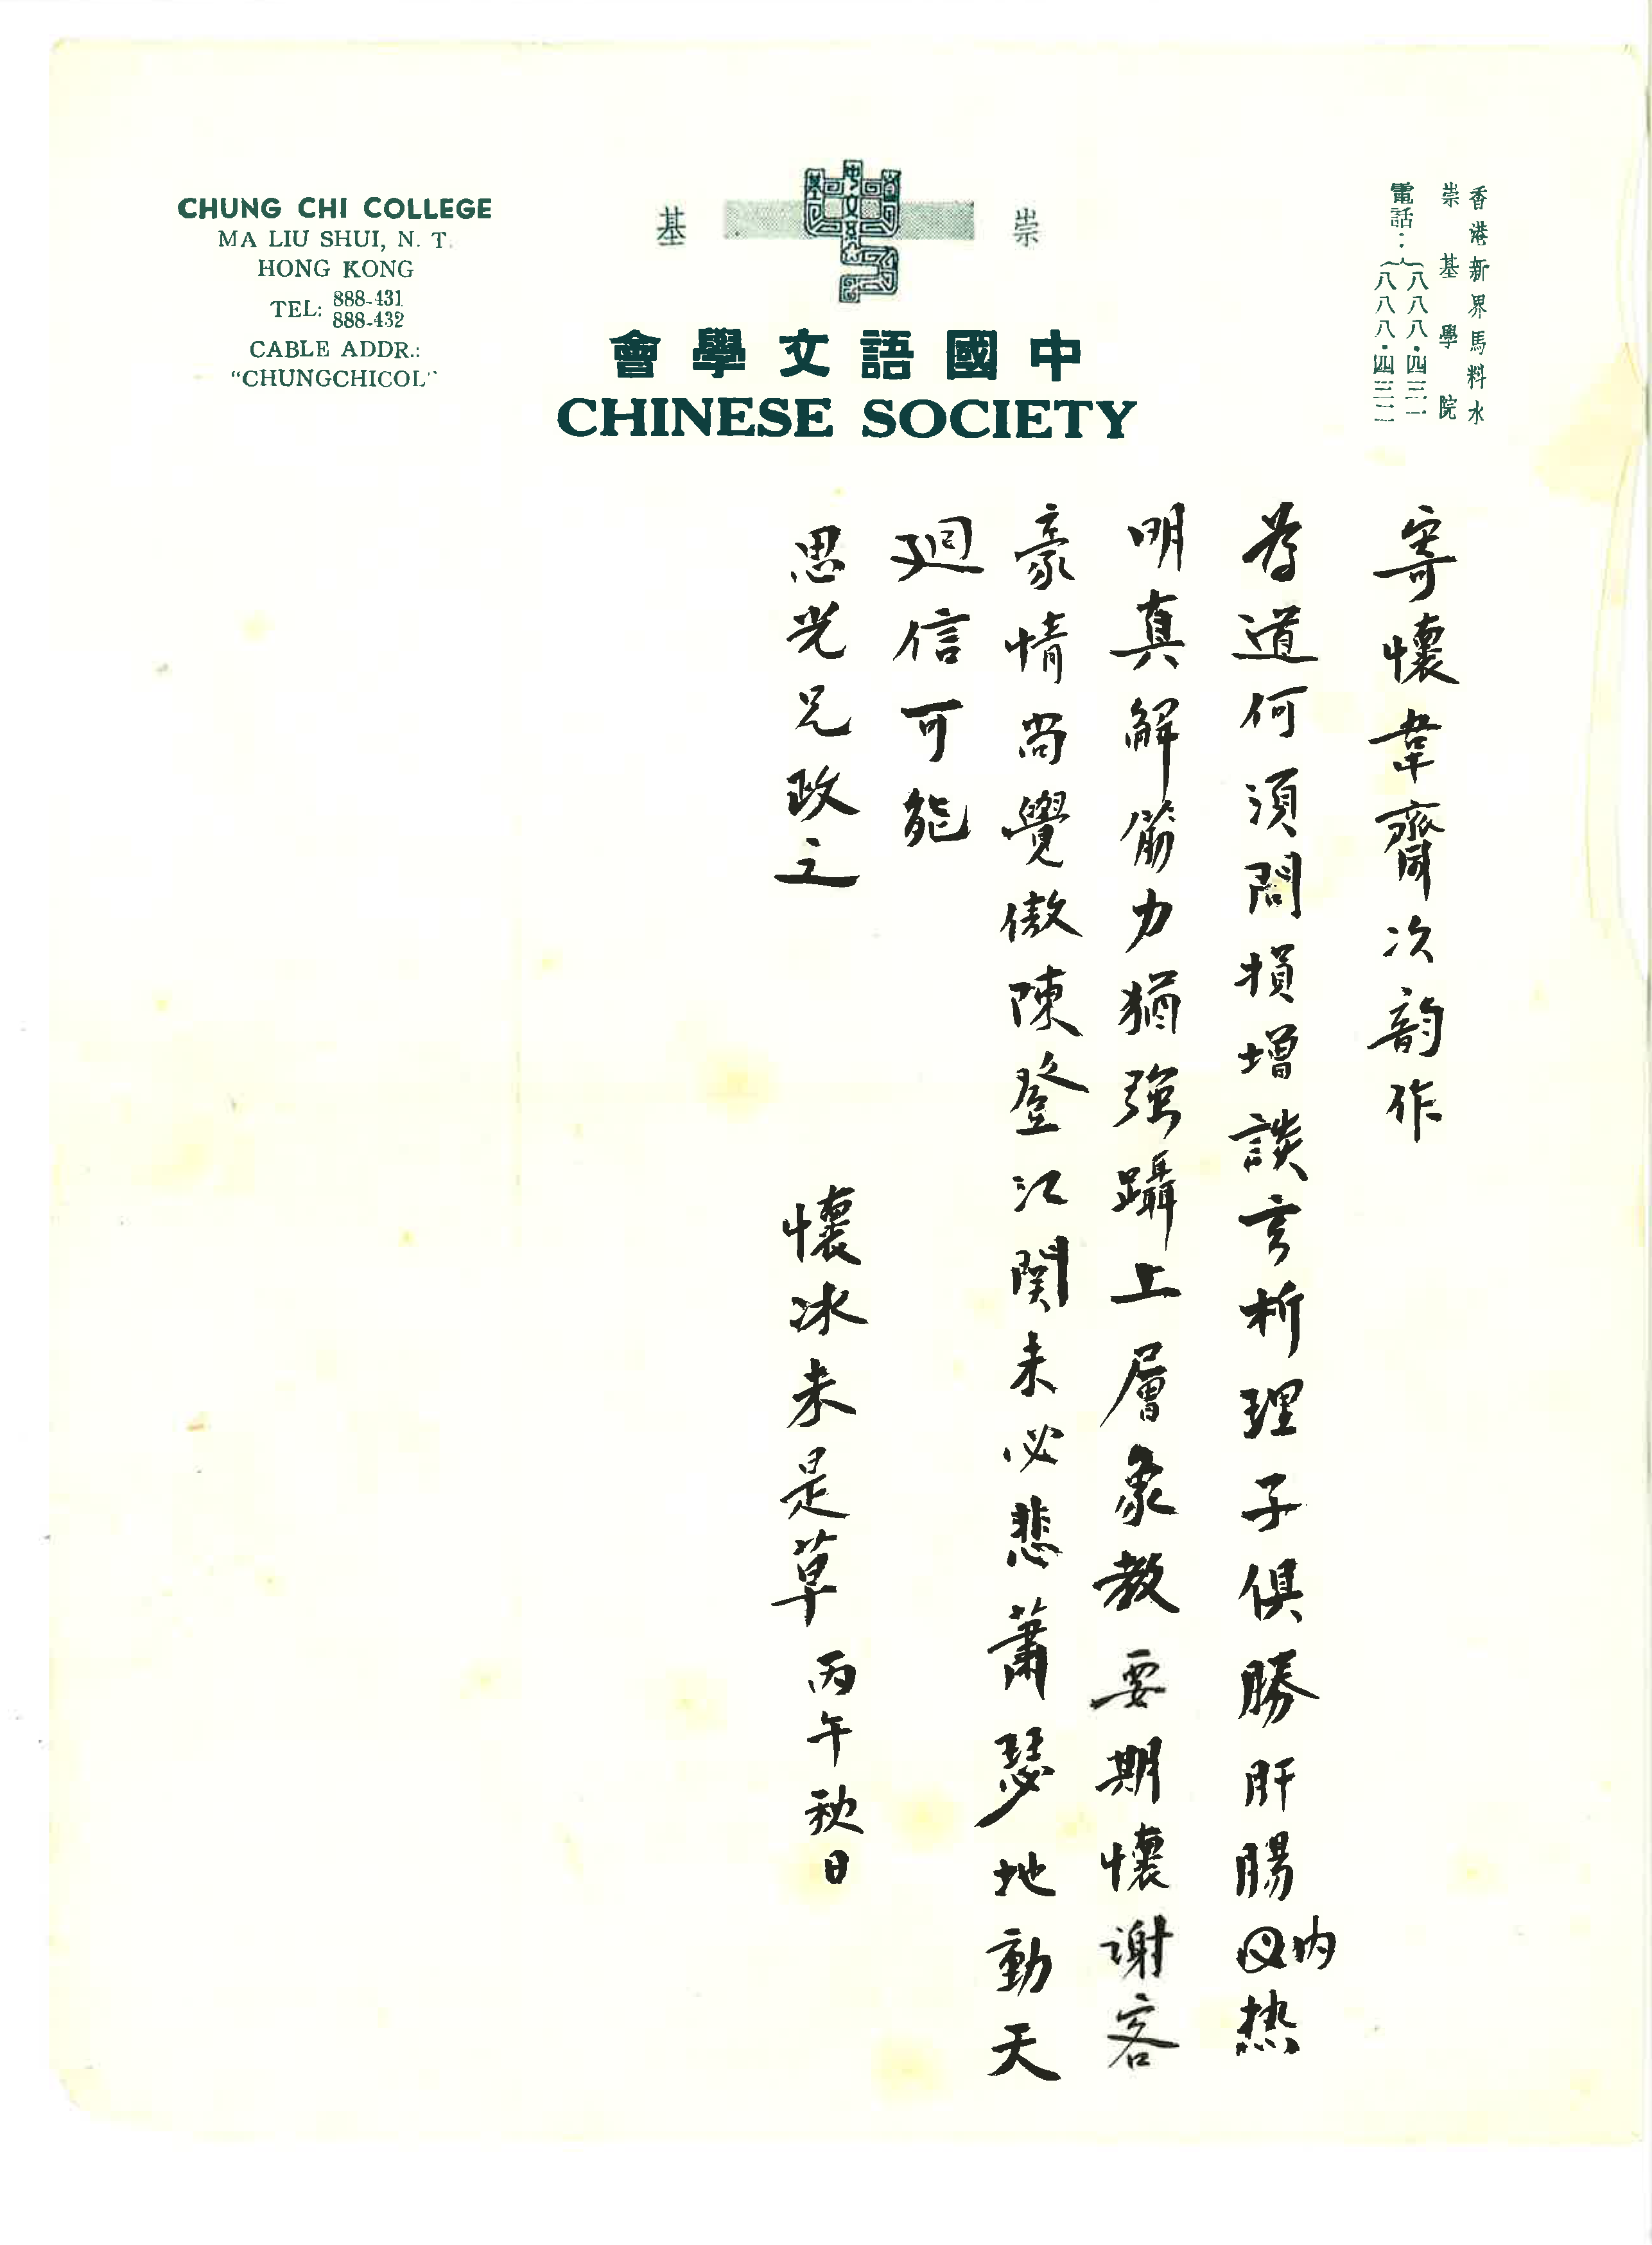 CHUNG CHI COLLEGE
MA LIU SHUI, N. T.
HONG KONG
TEL: 888-431
888-432
CABLE ADDR.:
"CHUNGCHICOL"
崇 基
中國語文學會
CHINESE SOCIETY
香港新界馬料水
崇基學院
電話：八八八·四三一
八八八·四三二
寄懷韋齋次韵作
为道何須問損增談玄析理子俱勝肝腸内热
明真解筋力猶強躡上層象教要期懷谢客
豪情尚覺傲陳登江関未必悲蕭瑟地動天
迴信可能
思光兄政之
懷冰未是草 丙午秋日